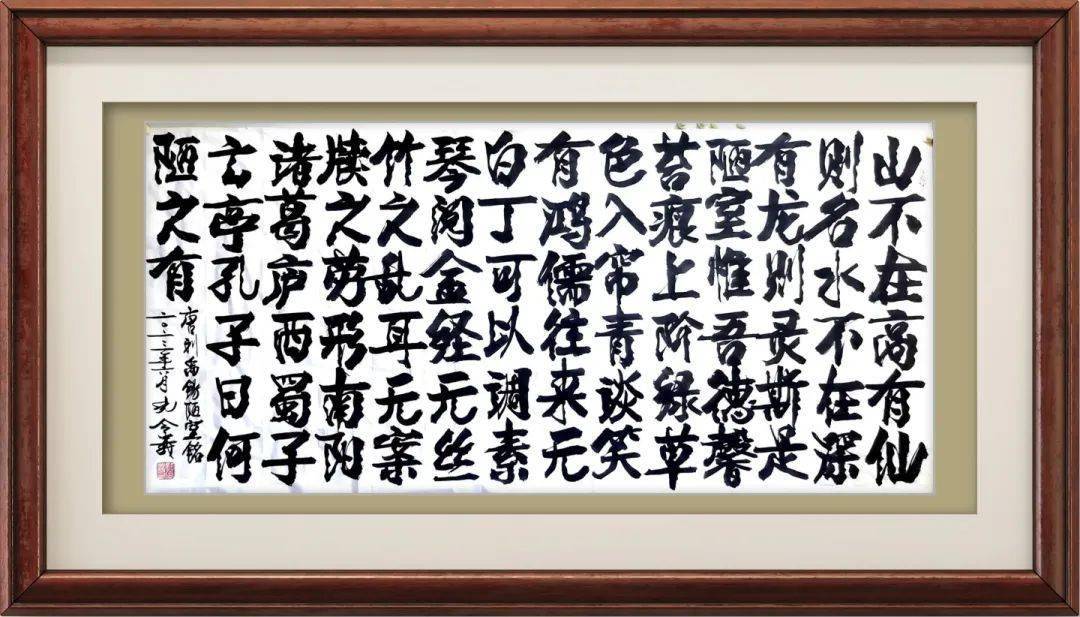 山不在高有仙
则名水不在深
有龙则灵斯是
陋室惟吾德馨
苔痕上阶绿草
色入帘青谈笑
有鸿儒往来无
白丁可以调素
琴阅金经无丝
竹之乱耳无案
牍之劳形南阳
诸葛庐西蜀子
云亭孔子曰何
陋之有
唐刘禹锡陋室铭
二〇二三年六月